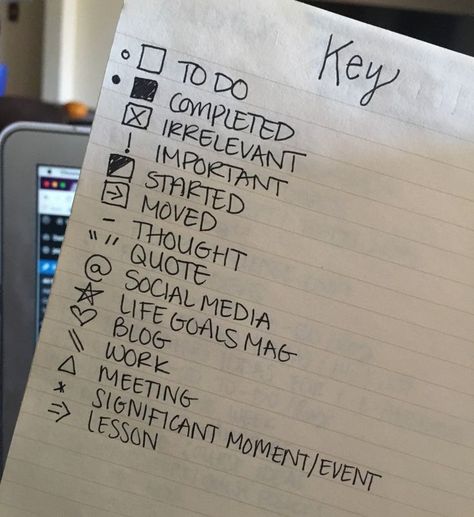 Key
TO DO
COMPLETED
IRRELEVANT
! IMPORTANT
STARTED
MOVED
- THOUGHT
" " QUOTE
@ SOCIAL MEDIA
☆ LIFE GOALS MAG
♡ BLOG
\\ WORK
△ MEETING
* SIGNIFICANT MOMENT/EVENT
⇒ LESSON